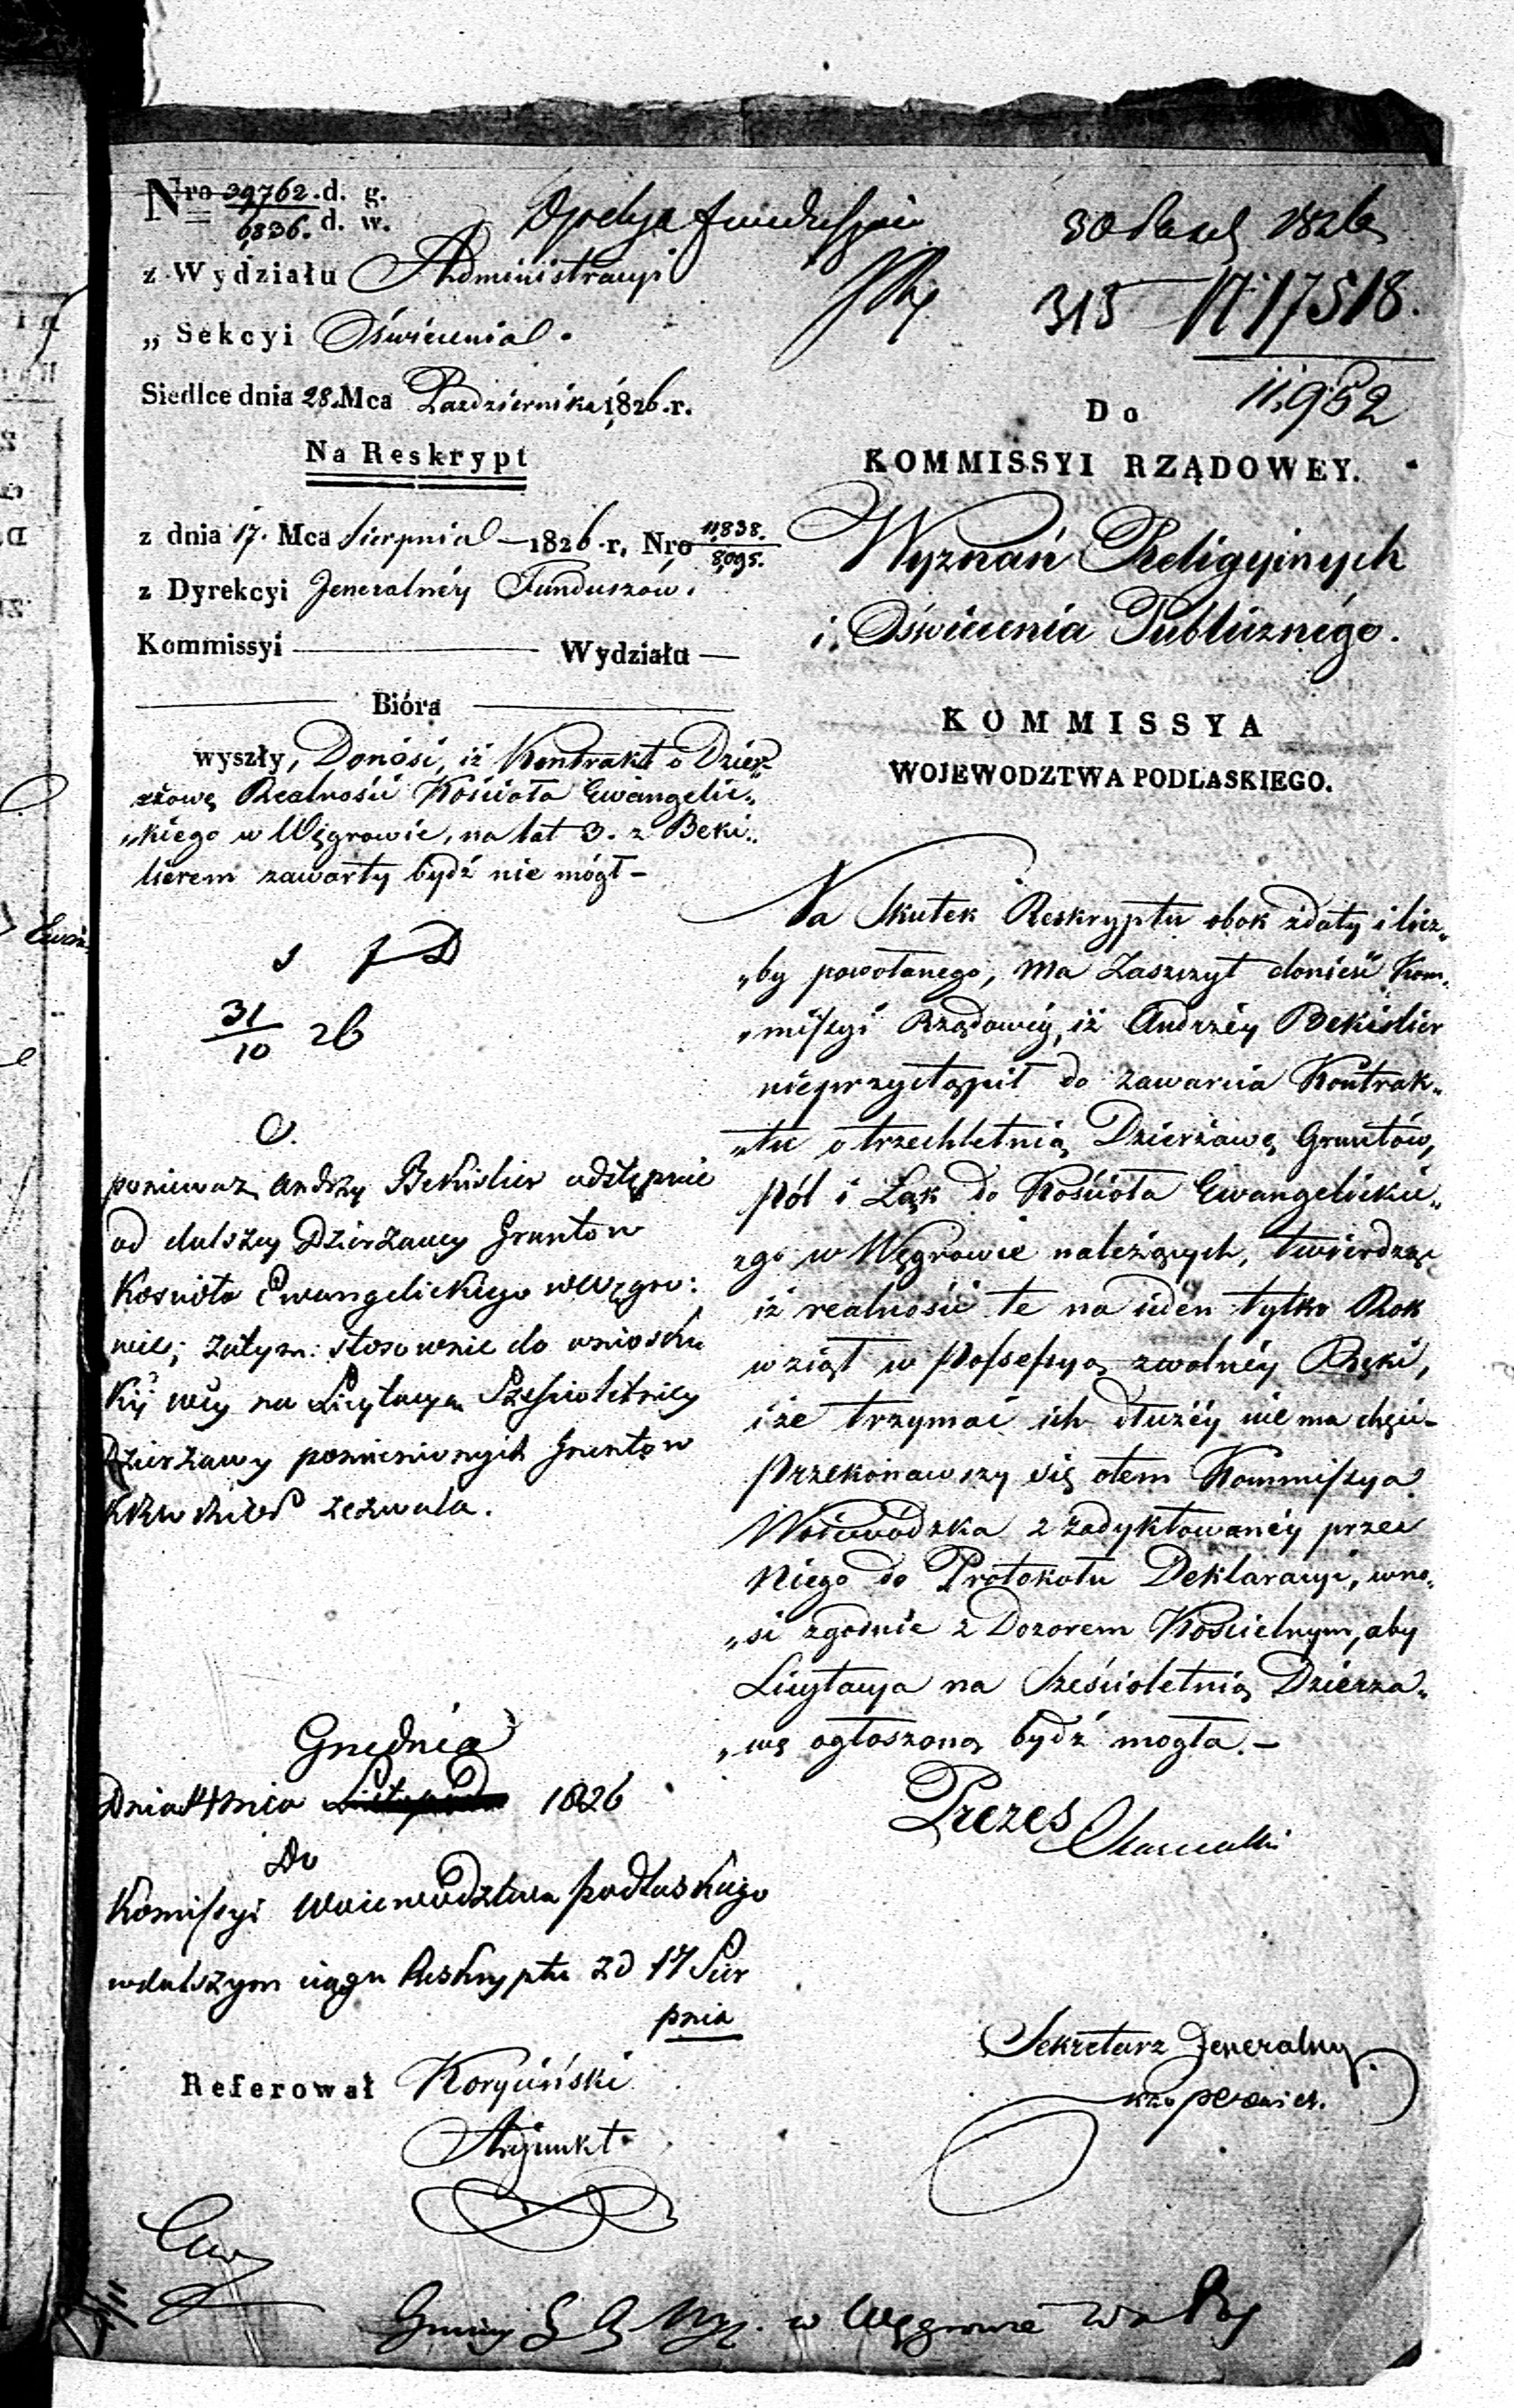 Nro 39762. d. g.
6,836. d. w.
z Wydziału Administracyi
„ Sekcyi Oświecenia.
Siedlce dnia 28. Mca Października 1826. r.
Na Reskrypt
z dnia 17. Mca Sierpnia — 1826. r. Nro 11,838.
8,095.
z Dyrekcyi Jeneralnéy Funduszów.
Kommissyi — Wydziału —
Bióra
wyszły, Donosi, iż Kontrakt o Dzier„
żawę Realności Kościoła Ewangelic„
„kiego w Węgrowie, na lat 3. z Beki„
slierem zawarty bydź nie mógł —
31/10 26
ponieważ Andrzy Bekislier odstępuie
od dalszey Dzierżawy Gruntow
Kościoła Ewangelickiego w Węgro:
wie; zatym: stosownie do wniosku
na Licytacyą Sześcioletniey
Dzierżawy pomienionych Gruntow
zezwala.
Grudnia
Dnia 14 mca Listopada 1826
Do
Komissyi Woiewództwa Podlaskiego
w dalszym ciągu Reskryptu z d 17 Sier
pnia
Referował Koryciński
Adjunkt
315 N. 17518.
11,952
Do
KOMMISSYI RZĄDOWEY.
Wyznań Religyinych
i Oświecenia Publicznégo.
KOMMISSYA
WOJEWODZTWA PODLASKIEGO.
Na Skutek Reskryptu obok z daty i licz„
„by powołanego, ma Zaszczyt donieść Kom„
„missyi Rządowéy, iż Andrzéy Bekislier
nieprzystąpił do zawarcia Kontrak„
„tu o trzechletnią Dzierżawę Gruntów,
Pól i Łąk do Kościoła Ewangelickie„
„go w Węgrowie należących, twierdząc
iż realności te na ieden tylko Rok
wziął w Possessyą z wolnéy Ręki,
i że trzymać ich dłużéy nie ma chęci —
Przekonawszy się o tem Kommissya
Woiewódzka z zadyktowanéy przez
Niego do Protokołu Deklaracyi, wno„
„si zgodnie z Dozorem Kościelnym, aby
Licytacya na Sześcioletnią Dzierża„
„wę ogłoszoną bydź mogła. —
Prezes
Sekretarz Jeneralny
Gminy w Węgrowie